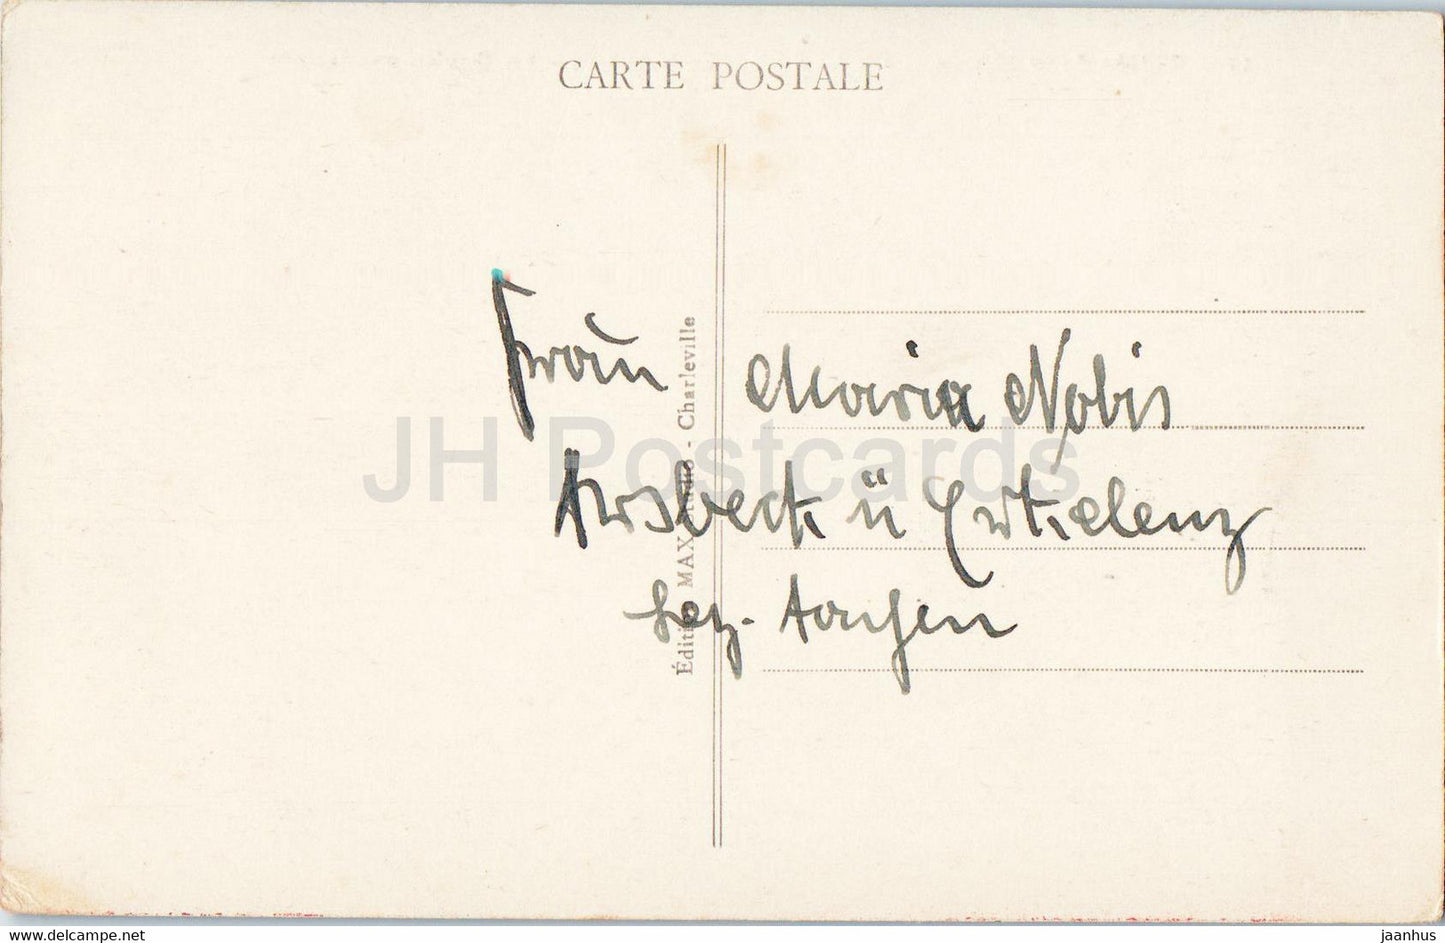 CARTE POSTALE
Édition MAX Studio - Charleville
Frau Maria Nobis
Arsbeck ü Erkelenz
bez. Aachen
JH Postcards
www.delcampe.net
jaanhus